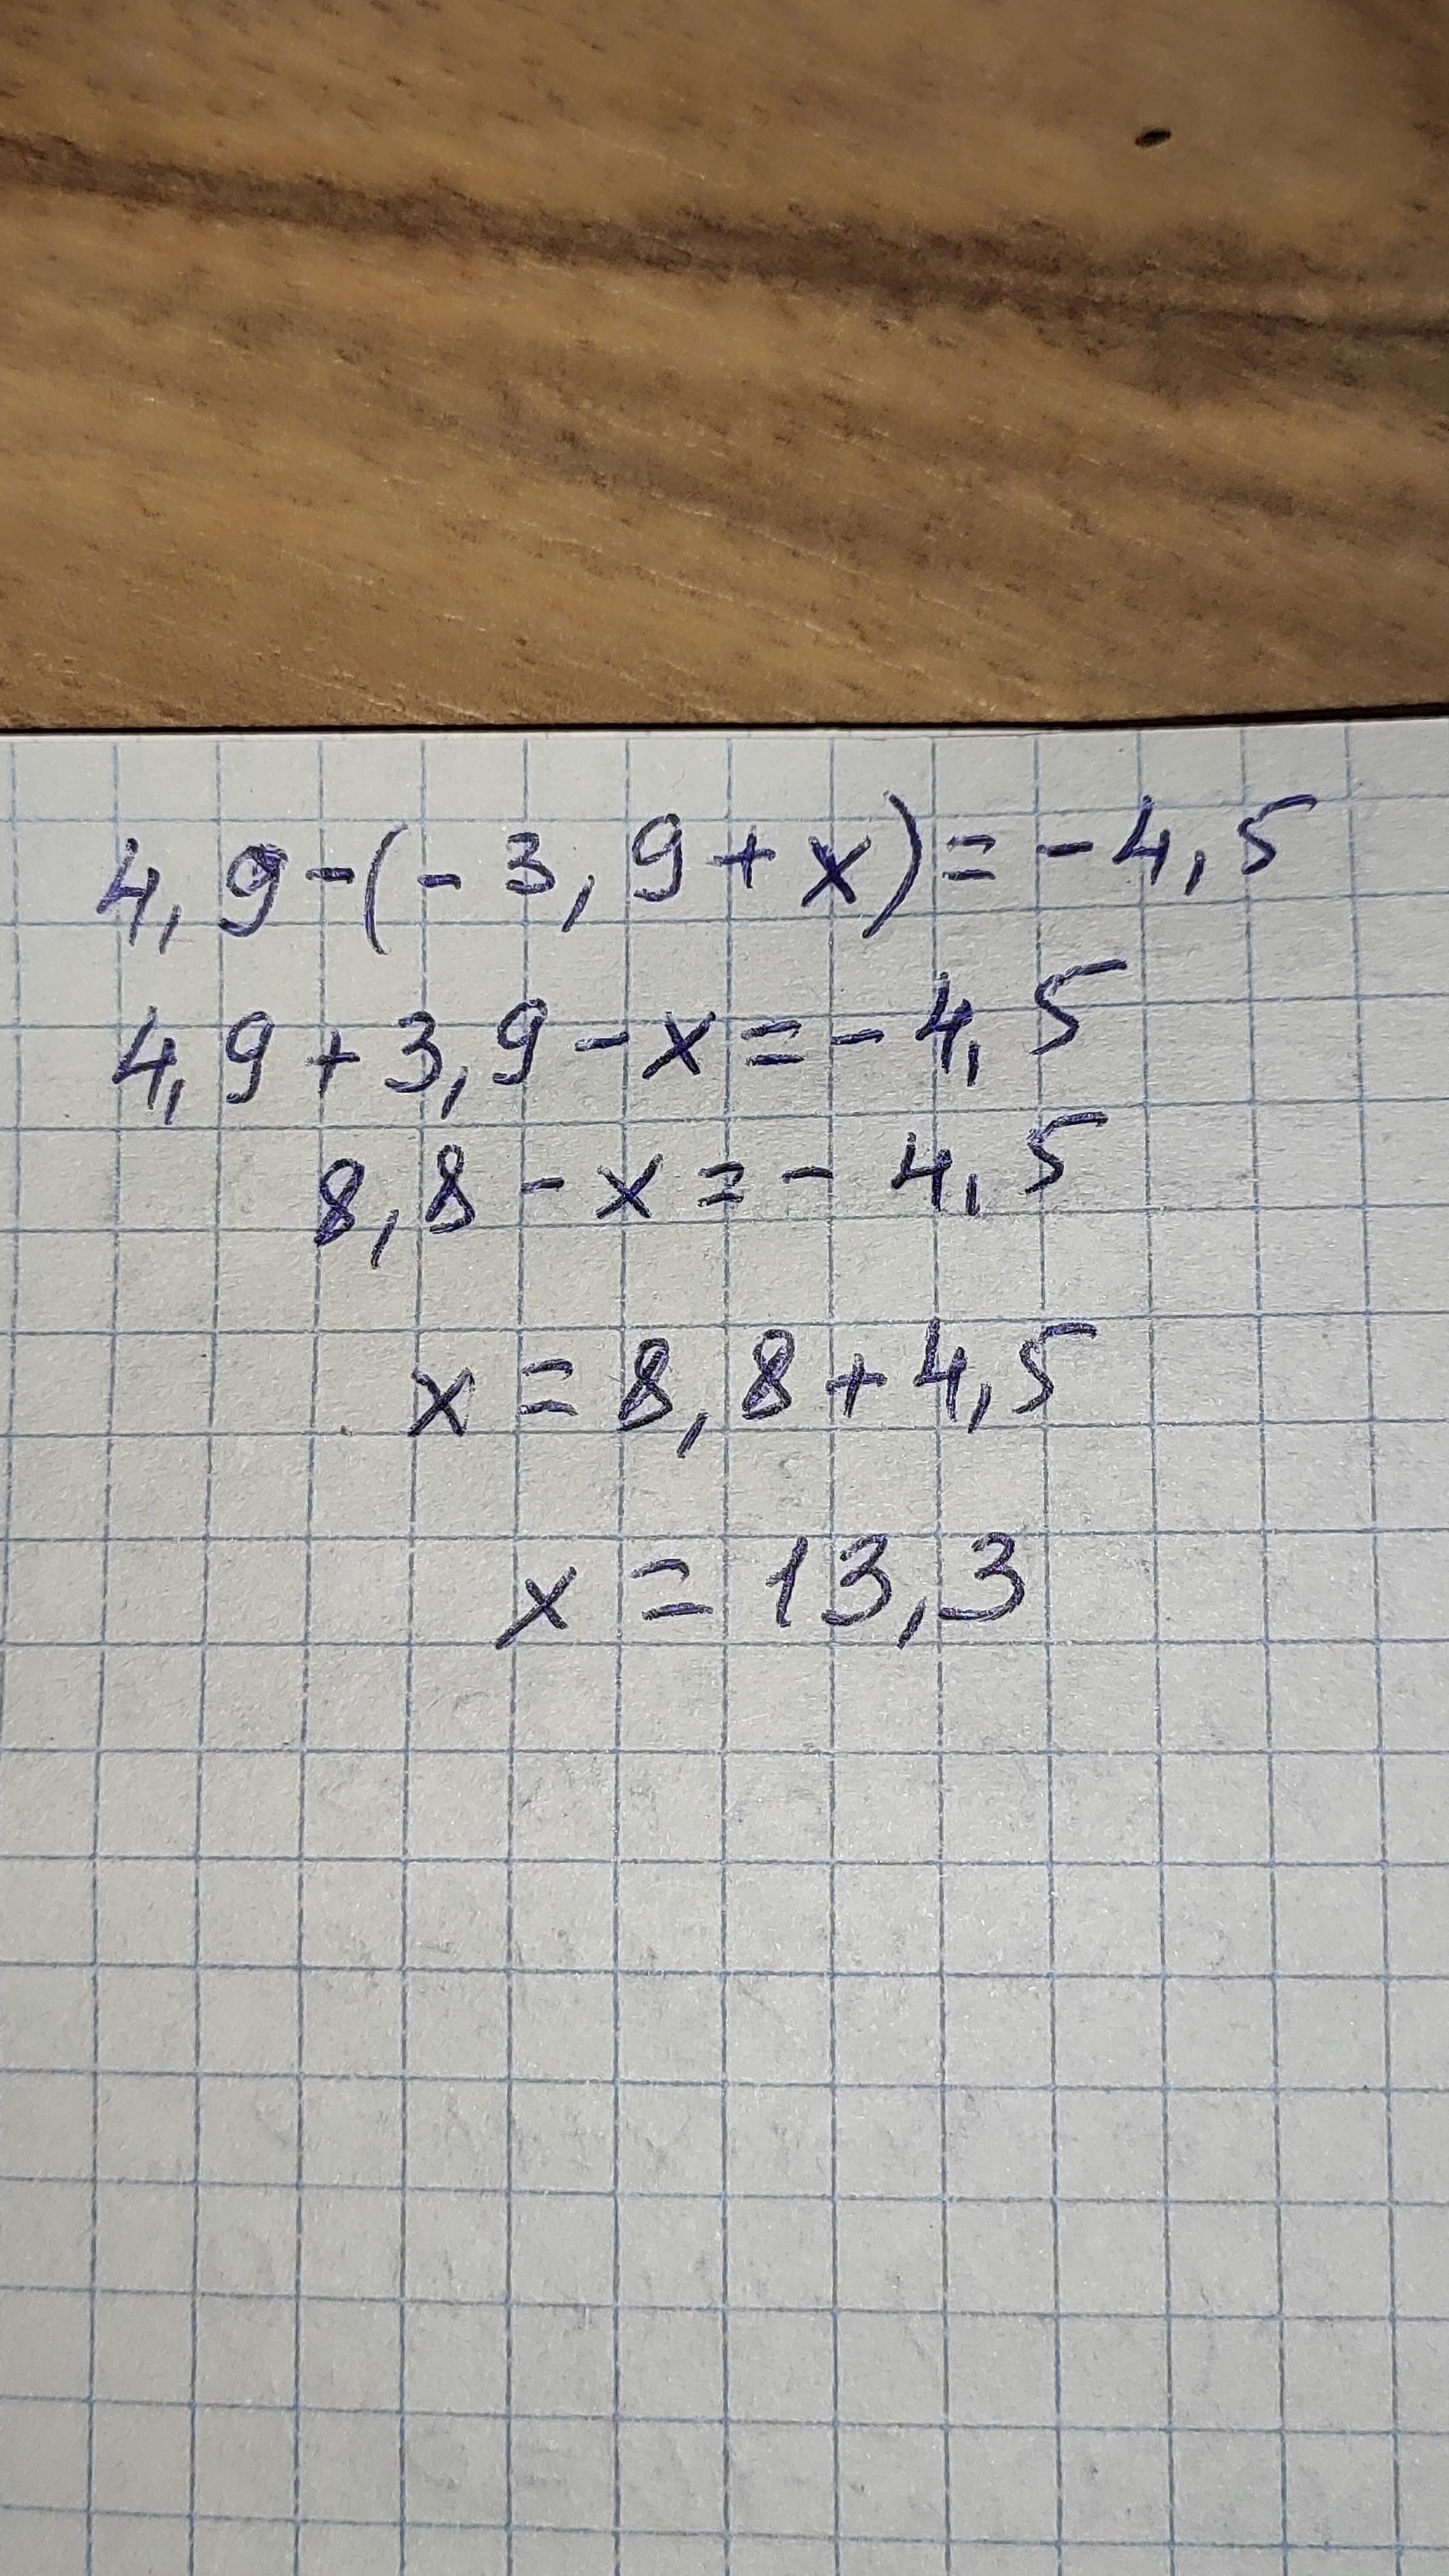 4,9-(-3,9+x)=-4,5
4,9+3,9-x=-4,5
8,8-x=-4,5
x=8,8+4,5
x=13,3